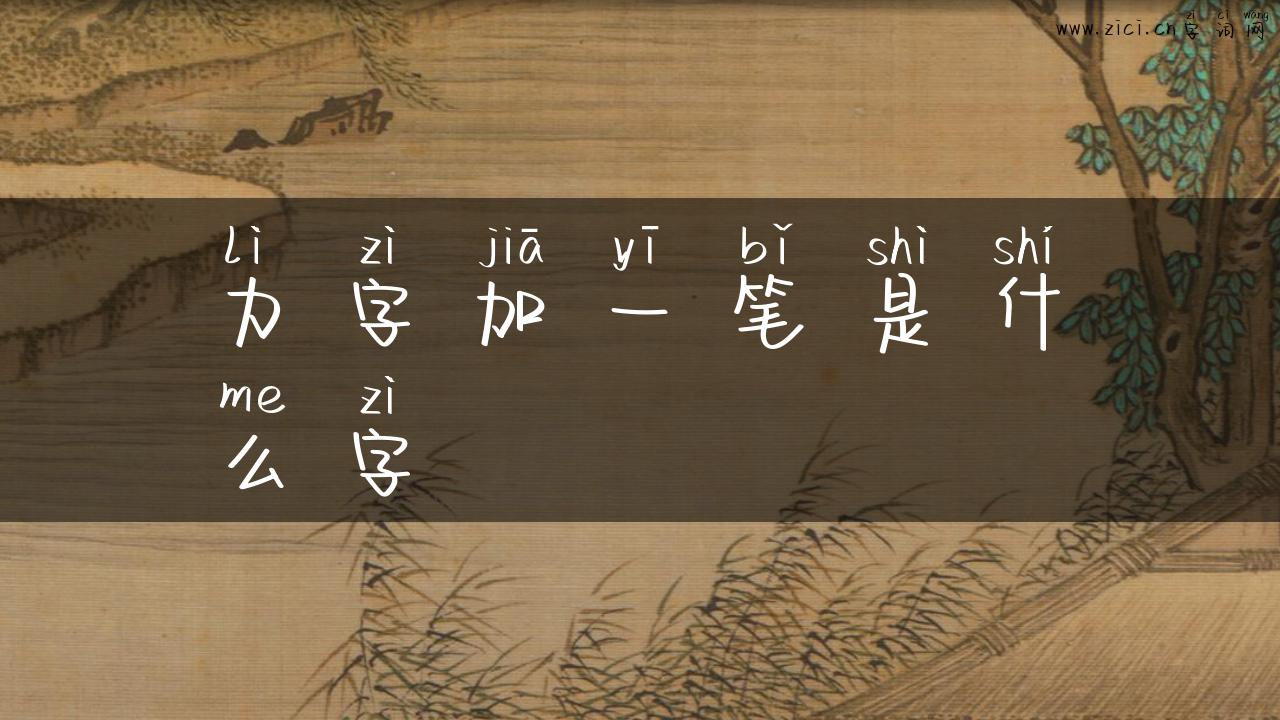 zì cí wǎng
www.zici.cn字词网
lì zì jiā yī bǐ shì shí
力字加一笔是什
me zì
么字